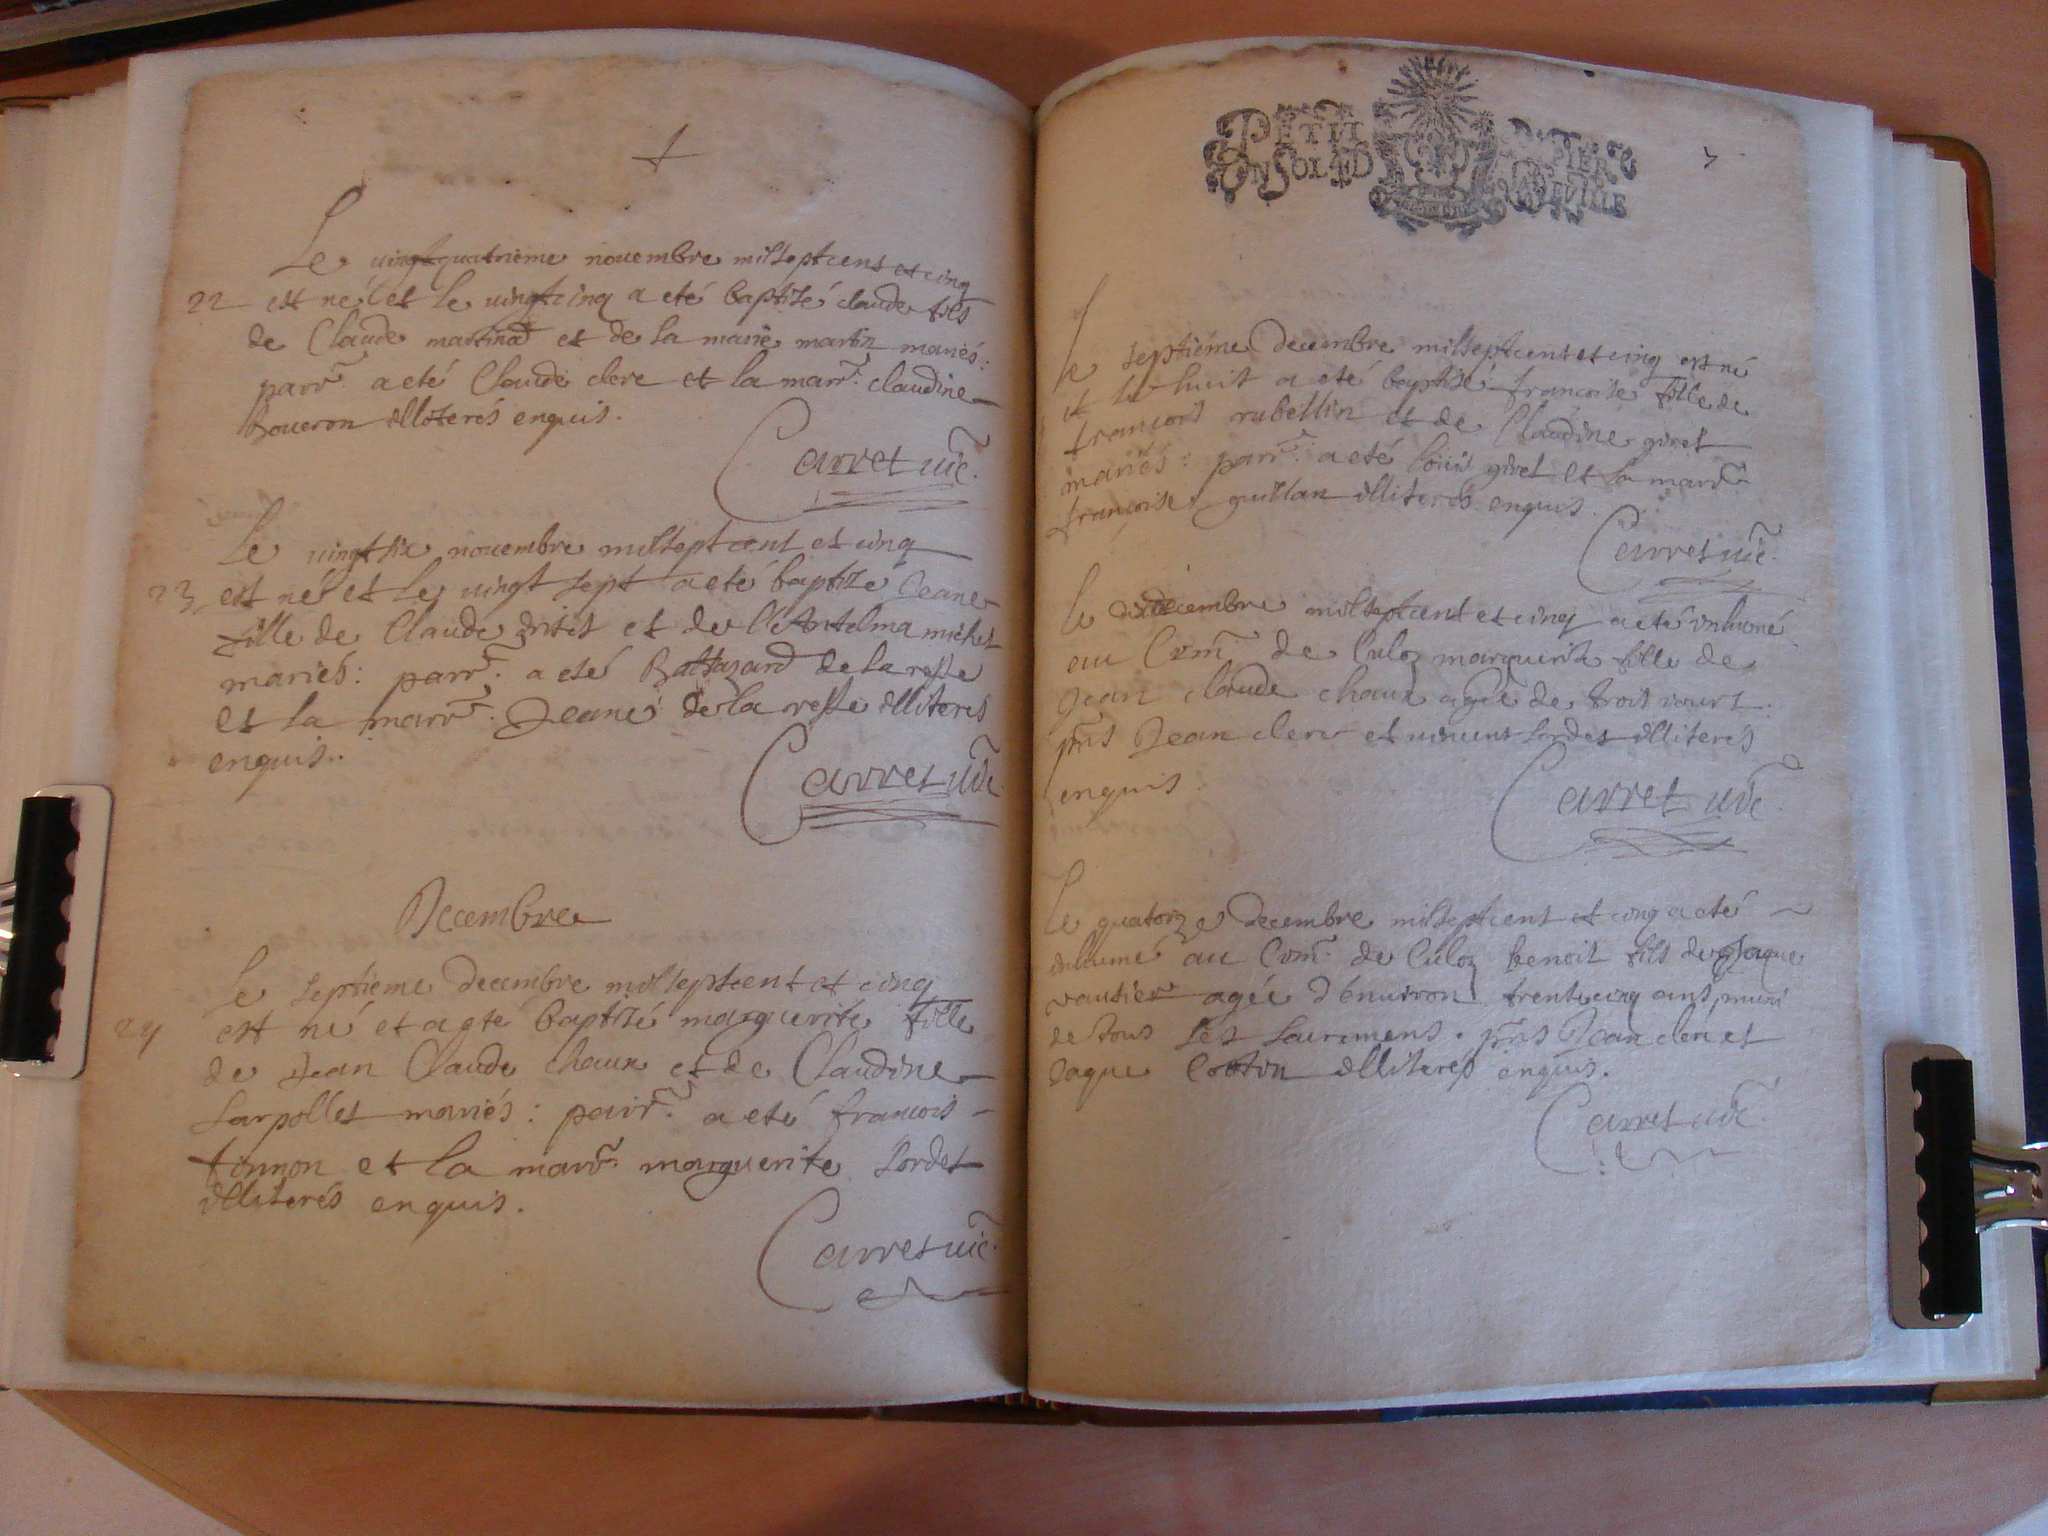 Le vingtquatrieme novembre mil sept cens et cinq
22 est né et le vingtcinq a eté baptizé claude fils
de Claude martinad et de la marie martin mariés :
parr. a eté Claude clerc et la marr. claudine
Boveron illiterés enquis.
Carret vic.
Le vingt six novembre mil sept cent et cinq
23 est né et le vingt sept a eté baptize Jeane
fille de Claude et de Antelma michet
mariés : parr. a eté Baltazard de la reste
et la marr. Jeane de la reste illiteres
enquis..
Carret vic
Decembre
Le septieme decembre mil sept cent et cinq
24 est né et a eté baptizé marguerite fille
de Jean Claude Chaux et de Claudine
Sarpollet mariés : parr. a eté francois
tonnon et la marr. marguerite Sordet
illiterés enquis.
Carret vic.
PETIT PAPIER
EN SOL ED VILLE
7
le septiéme decembre mil sept cent et cinq est né
et le huit a eté baptisé francoise fille de
francois rubellin et de Claudine giret
mariés : parr. a eté loüis giret et la marr.
francoise guillan illiterés enquis.
Carret vic.
le decembre mil sept cent et cinq a eté inhumé
au Cem. de Culoz marguerite fille de
Jean claude chaux agée de trois jours :
pns Jean clerc et vincent Sordet illiteres
enquis.
Carret vic.
Le quatorze decembre mil sept cent et cinq a eté
inhumé au Cem. de Culoz benoit fils de Jaque
vautier agée d'environ trente cinq ans, muni
de tous les sacremens. pns Jean clerc et
Jaque Cottin illiterés enquis.
Carret vic.